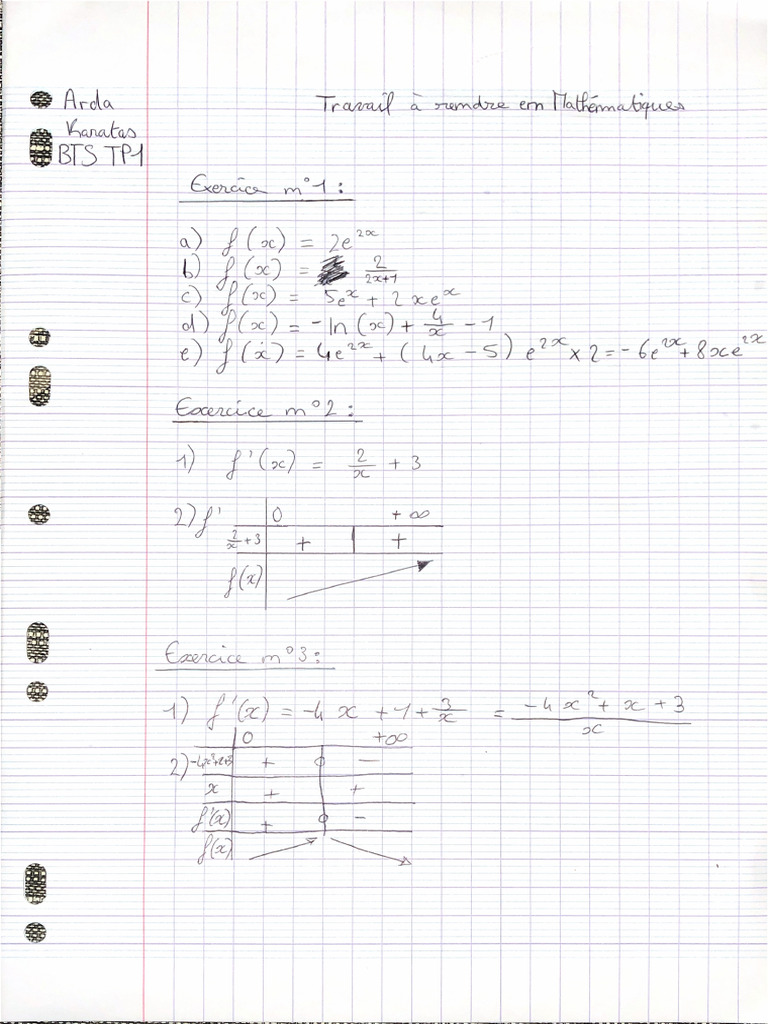 Arda
Travail à rendre en Mathématiques
Karatas
BTS TP1
Exercice n°1 :
a) f(x) = 2e^{2x}
b) f(x) = \frac{2}{2x+1}
c) f(x) = 5e^x + 2xe^x
d) f(x) = -ln(x) + \frac{4}{x} - 1
e) f(x) = 4e^{2x} + (4x - 5) e^{2x} × 2 = -6e^{2x} + 8xe^{2x}
Exercice n°2 :
1) f'(x) = \frac{2}{x} + 3
2) f' 0 +∞
\frac{2}{x}+3 + | +
f(x)
Exercice n°3 :
1) f'(x) = -4x + 1 + \frac{3}{x} = \frac{-4x² + x + 3}{x}
0 +∞
2) -4x²+x+3 + 0 -
x + +
f'(x) + 0 -
f(x)